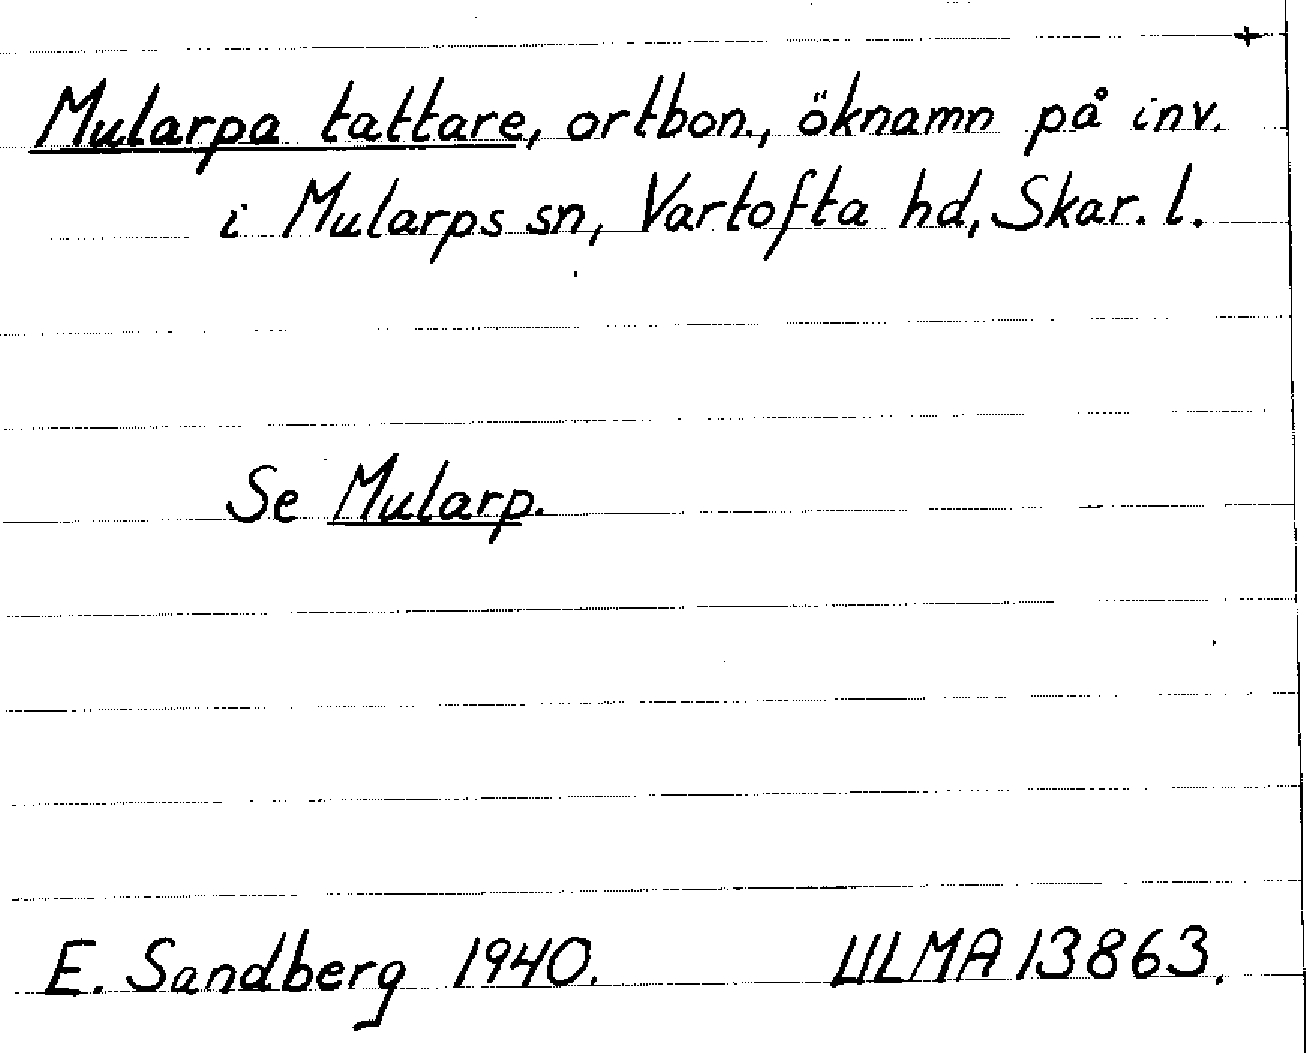 +
Mularpa tattare, ortbon., öknamn på inv.
i Mularps sn, Vartofta hd, Skar. l.
Se Mularp.
E. Sandberg 1940. ULMA 13863.